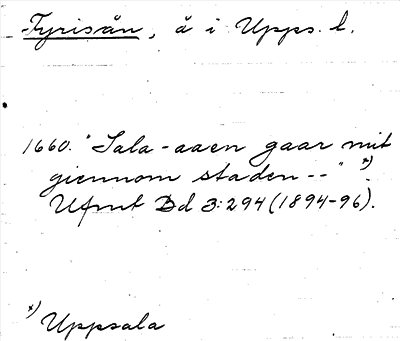 Fyrisån, å i Upps. l.
1660. "Sala-aaen gaar mit
giennom staden--" *)
Ufmt Bd 3:294 (1894-96).
*) Uppsala